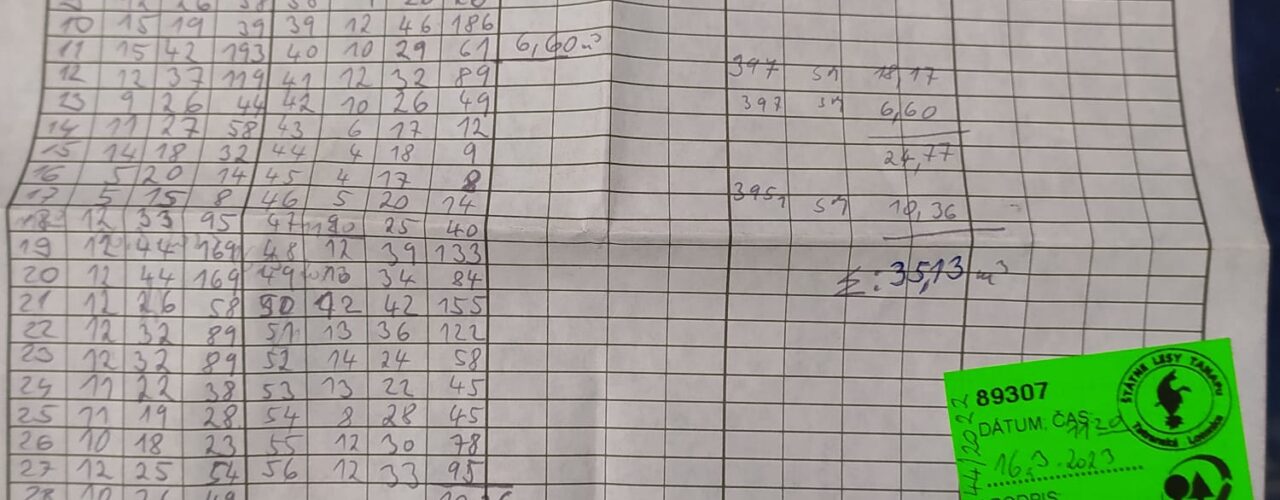 10 15 19 39 39 12 46 186
11 15 42 193 40 10 29 61 6,60 m³
12 12 37 119 41 12 32 89 397 sm 18,17
13 9 26 44 42 10 26 49 397 sm 6,60
14 11 27 58 43 6 17 12
15 14 18 32 44 4 18 9 24,77
16 5 20 14 45 4 17 8
17 5 15 8 46 5 20 14 395 sm 10,36
18 12 33 95 47 25 40
19 12 44 169 48 12 39 133
20 12 44 169 49 13 34 84 Σ: 35,13 m³
21 12 26 58 50 12 42 155
22 12 32 89 51 13 36 122
23 12 32 89 52 14 24 58
24 11 22 38 53 13 22 45
25 11 19 28 54 8 28 45
26 10 18 23 55 12 30 78
27 12 25 54 56 12 33 95
28 10 49
ŠTÁTNE LESY TANAPU
Tatranská Lomnica
89307
DÁTUM: ČAS: 1120
16.3.2023
44/2022
PODPIS